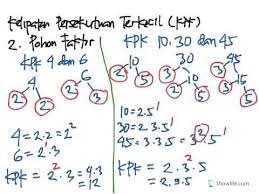 Kelipatan Persekutuan Terkecil (KPK)
2. Pohon Faktor
KPK 4 dan 6
4
2 2
6
2 3
4 = 2.2 = 2²
6 = 2¹.3¹
KPK = 2².3¹ = 4.3
= 12
KPK 10, 30 dan 45
10
2 5
30
2 15
3 5
45
3 15
3 5
10 = 2.5¹
30 = 2.3.5¹
45 = 3.3.5 = 3².5¹
KPK = 2.3².5
= 2.5
ShowMe.com